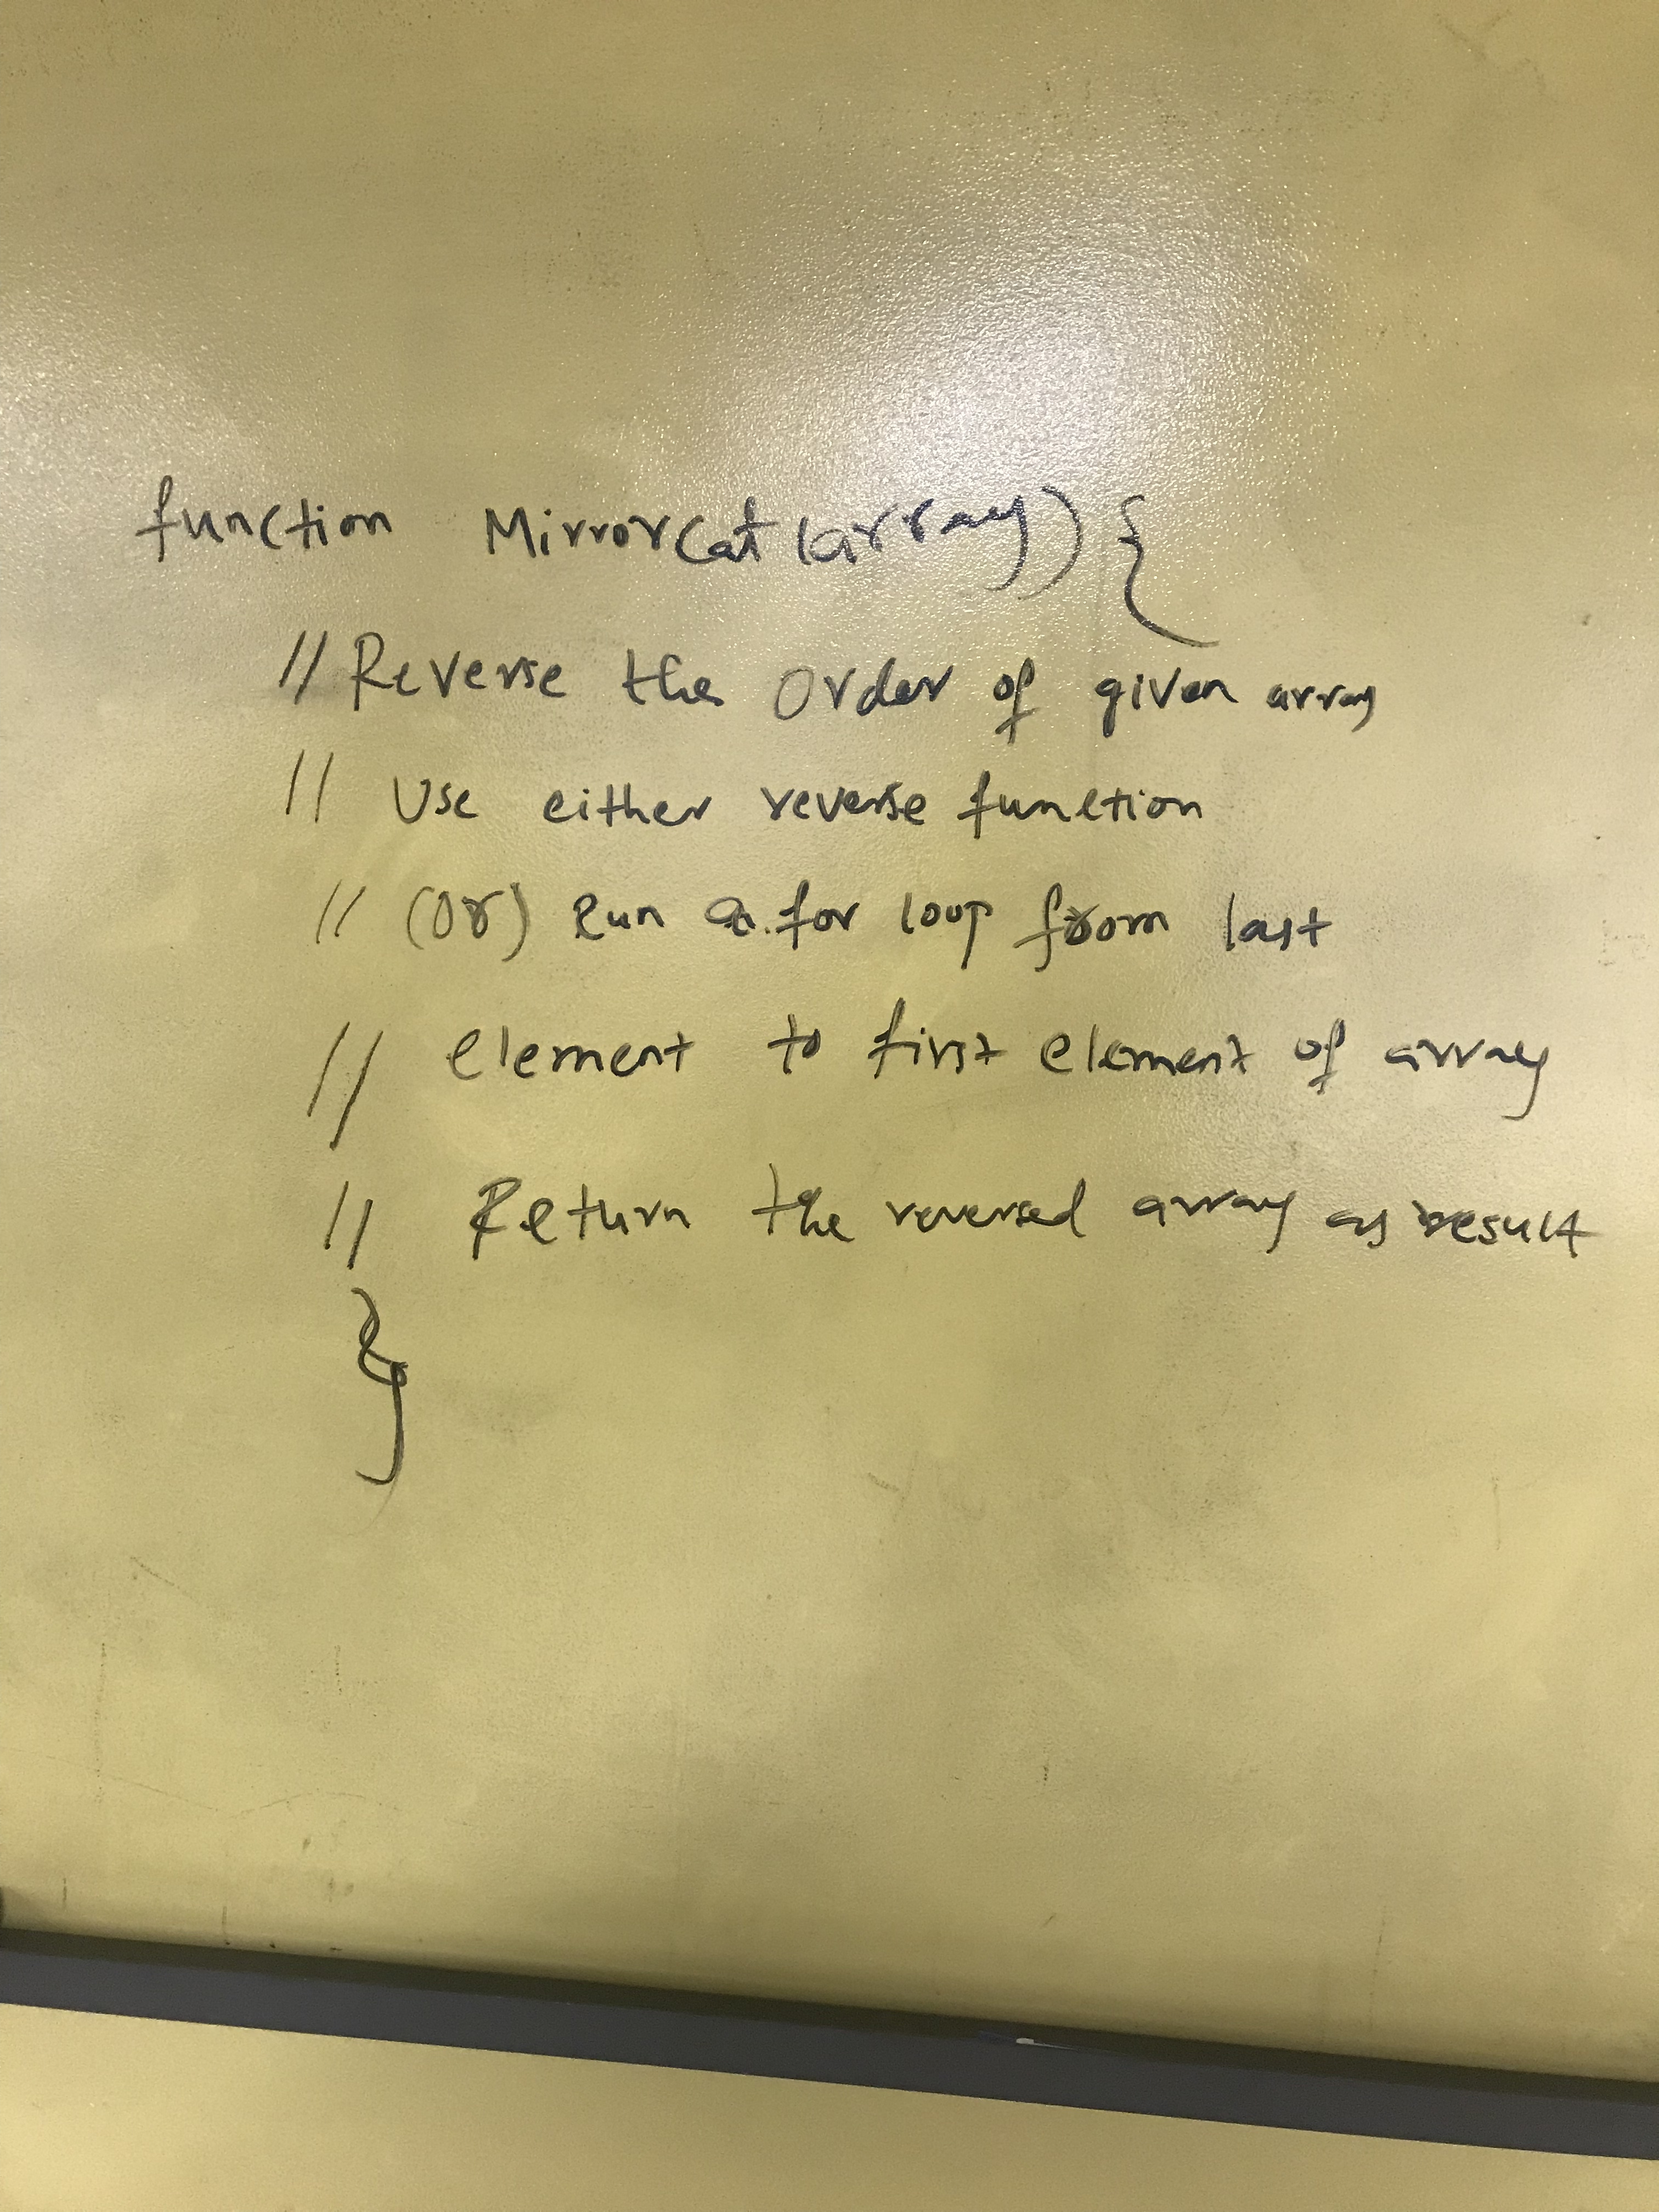 function MirrorCat (array) {
// Reverse the Order of given array
// Use either reverse function
// (Or) Run a for loop from last
// element to first element of array
// Return the reversed array as result
}